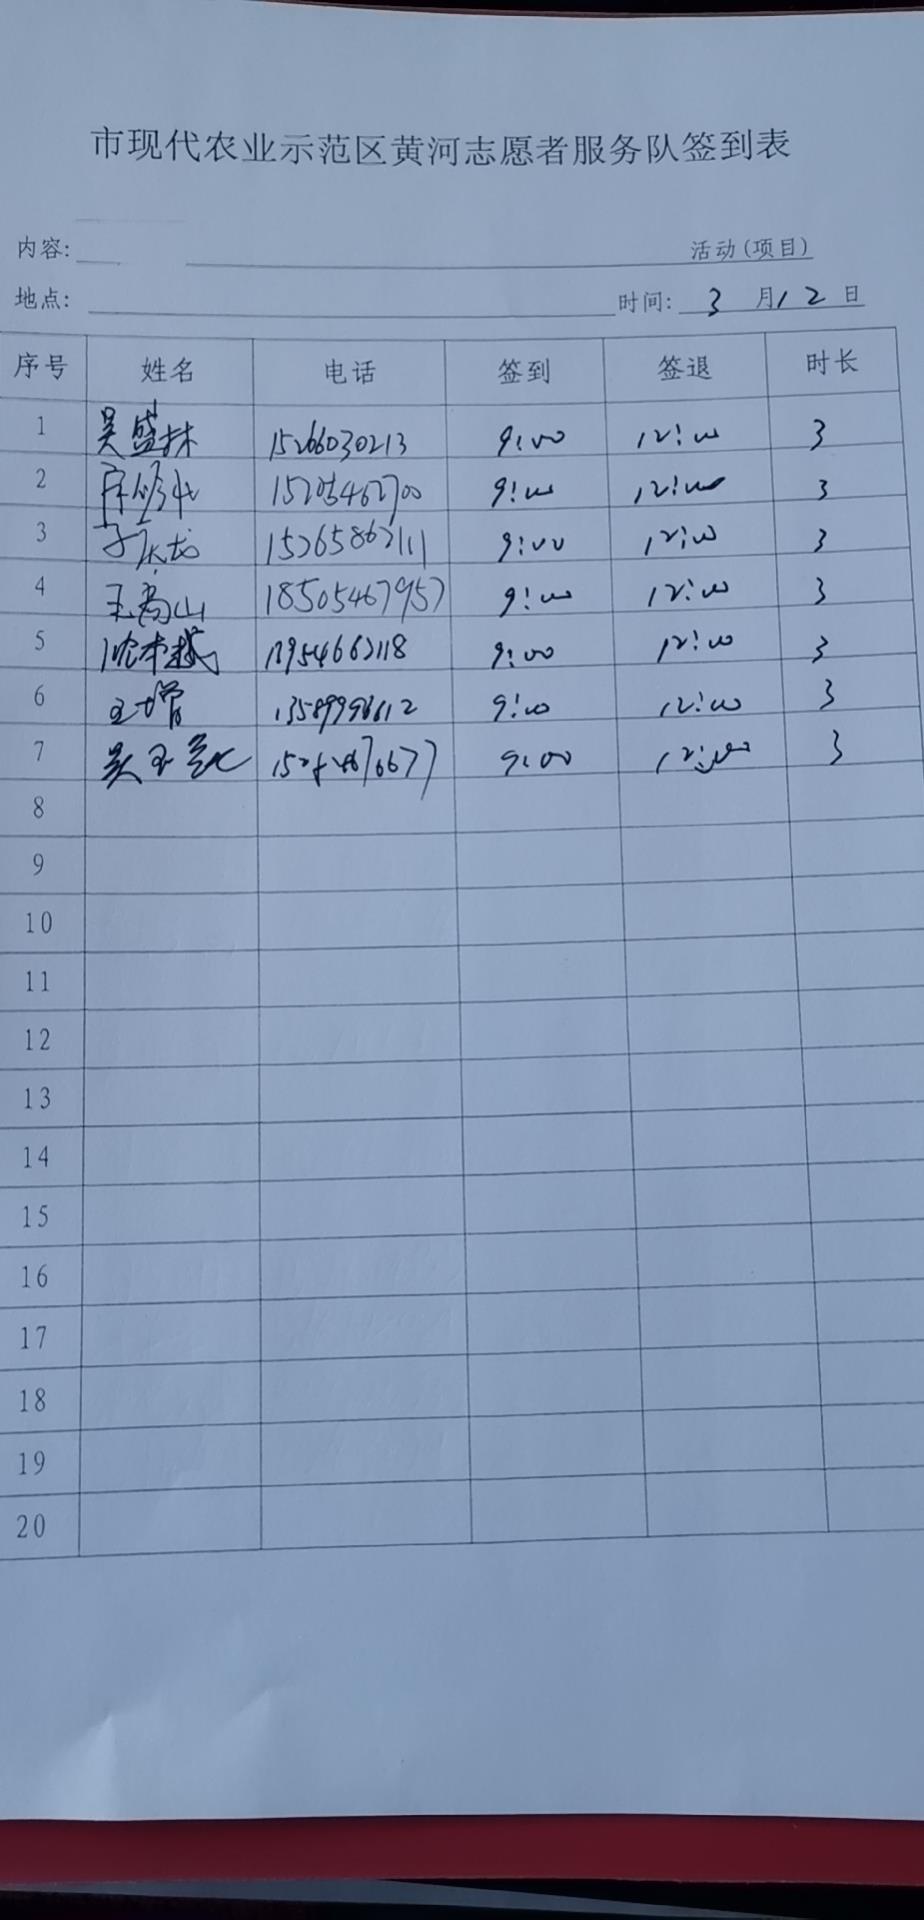 市现代农业示范区黄河志愿者服务队签到表
内容: 活动(项目)
地点: 时间: 3 月 12 日
序号 姓名 电话 签到 签退 时长
1 吴盛林 15266030213 9:00 12:00 3
2 15205462700 9:00 12:00 3
3 15265862111 9:00 12:00 3
4 王高山 18505467957 9:00 12:00 3
5 9:00 12:00 3
6 王增 13589996612 9:00 12:00 3
7 9:00 12:00 3
8
9
10
11
12
13
14
15
16
17
18
19
20